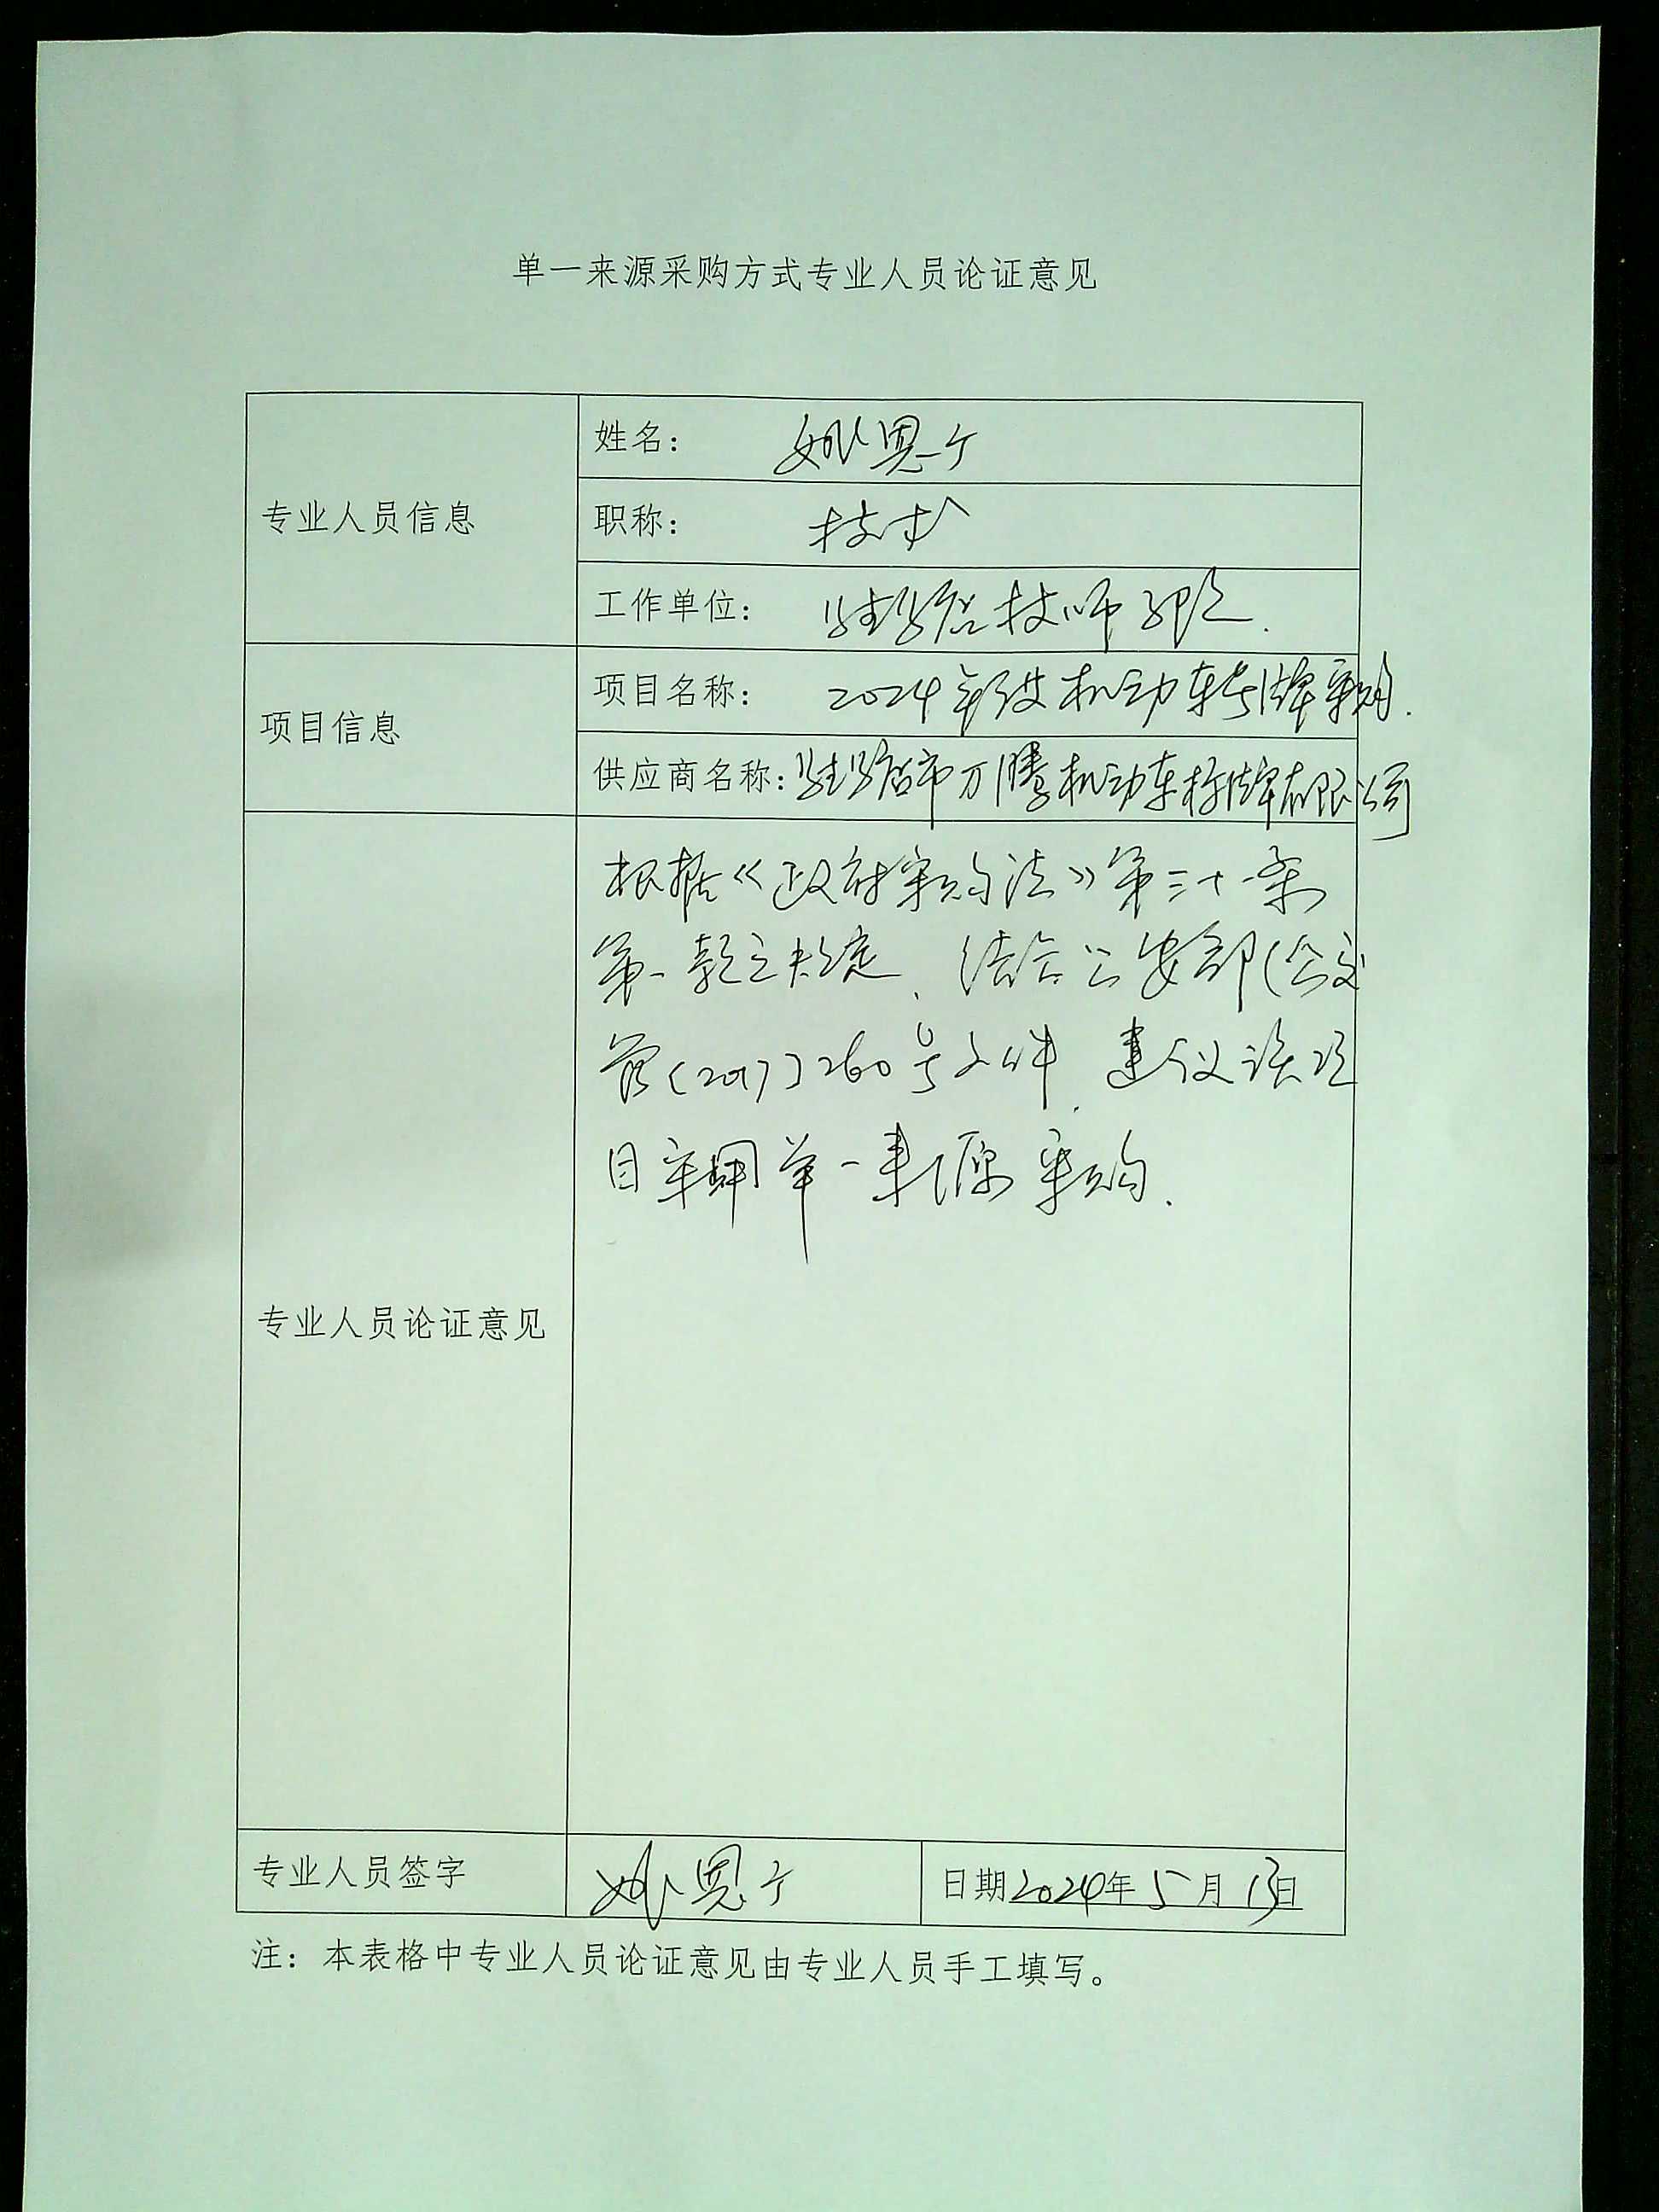 单一来源采购方式专业人员论证意见
专业人员信息
姓名： 姚恩广
职称： 技术
工作单位： 驻马店技师学院.
项目信息
项目名称： 2024年度机动车号牌采购.
供应商名称： 驻马店市万腾机动车标牌有限公司
专业人员论证意见
根据《政府采购法》第三十一条
第一款之规定、结合公安部(公交
管(2017)260号文件.建议该项
目采用单一来源采购.
专业人员签字
姚恩广
日期2024年5月13日
注：本表格中专业人员论证意见由专业人员手工填写。